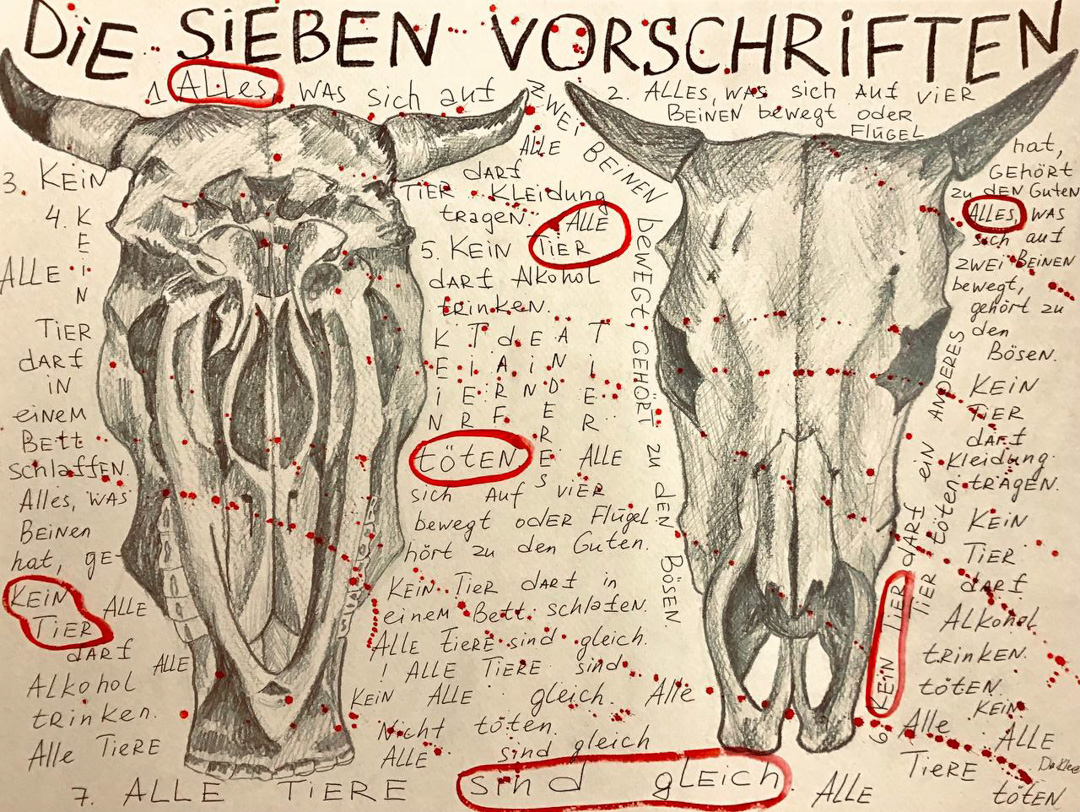 DiE SiEBEN VORSCHRiFTEN
1 ALLes, WAS sich auf
ZWEi BEiNEN bewegt, GEHÖRT zu den BÖSEN
2. ALLES, WAS sich Auf viER
BEiNEN bewegt odER
FLügEL
hat,
GEHÖRT
zu dEN GUTEN
3. KEiN
ALLE
TiER
dARf
iN
einem
BETT
schlaffEN.
4. KEiN
ALLE
dARf
TiER KLEidung
tragen.
ALLE
TiER
5. KEiN
darf Alkohol
trinken.
KEiN TiER dARF EiN ANDERES TiER
tötEN
ALLE
Alles, WAS
Beinen
hat, ge-
KEiN
TiER
ALLE
dARf
ALLE
ALkohol
tRinken.
Alle TiERE
sich Auf viER
bewegt odER Flügel
hört zu den Guten.
KEiN TiER dARf in
einem Bett schlafen.
ALLE TiERE sind gleich.
! ALLE TiERE sind
KEiN ALLE gleich. Alle
Nicht töten.
ALLE sind gleich
ALLES, WAS
sich auf
zwEi BEiNEN
bewegt,
gehört zu
den
Bösen.
KEiN
TiER
dARf
Kleidung
tRAgEN.
KEiN
TiER
dARf
Alkohol
tRinken.
tötEN.
KEiN
6 KEiN TiER dARf EiN ANdERES
TiER töten.
Alle
TiERE
ALLE
töten
7. ALLE TiERE sind gLEiCH ALLE